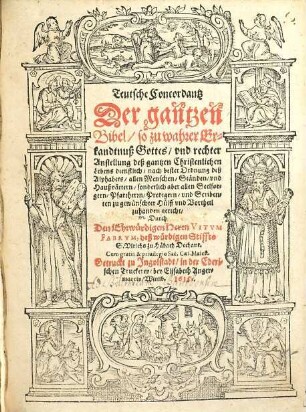 Teutsche Concordantz
Der gantzen
Bibel / so zu wahrer Er-
kandtnuß Gottes / vnd rechter
Anstellung deß gantzen Christenlichen
Lebens dienstlich / nach bester Ordnung deß
Alphabets / allen Menschen / Ständen / vnd
Haußvättern / sonderlich aber allen Seelsor-
gern / Pfarrherrn / Predigern / vnd Scribenten
zu gewünschter Hülff vnd Vortheil
zuhanden gericht /
Durch
Den Ehrwürdigen Herrn VITVM
FABRVM, deß würdigen Stiffts
Cum gratia & privilegio Sac. Caes. Maiest.
Getruckt zu Ingolstadt / in der Eder-
schen Truckerey / bey Elisabeth Anger-